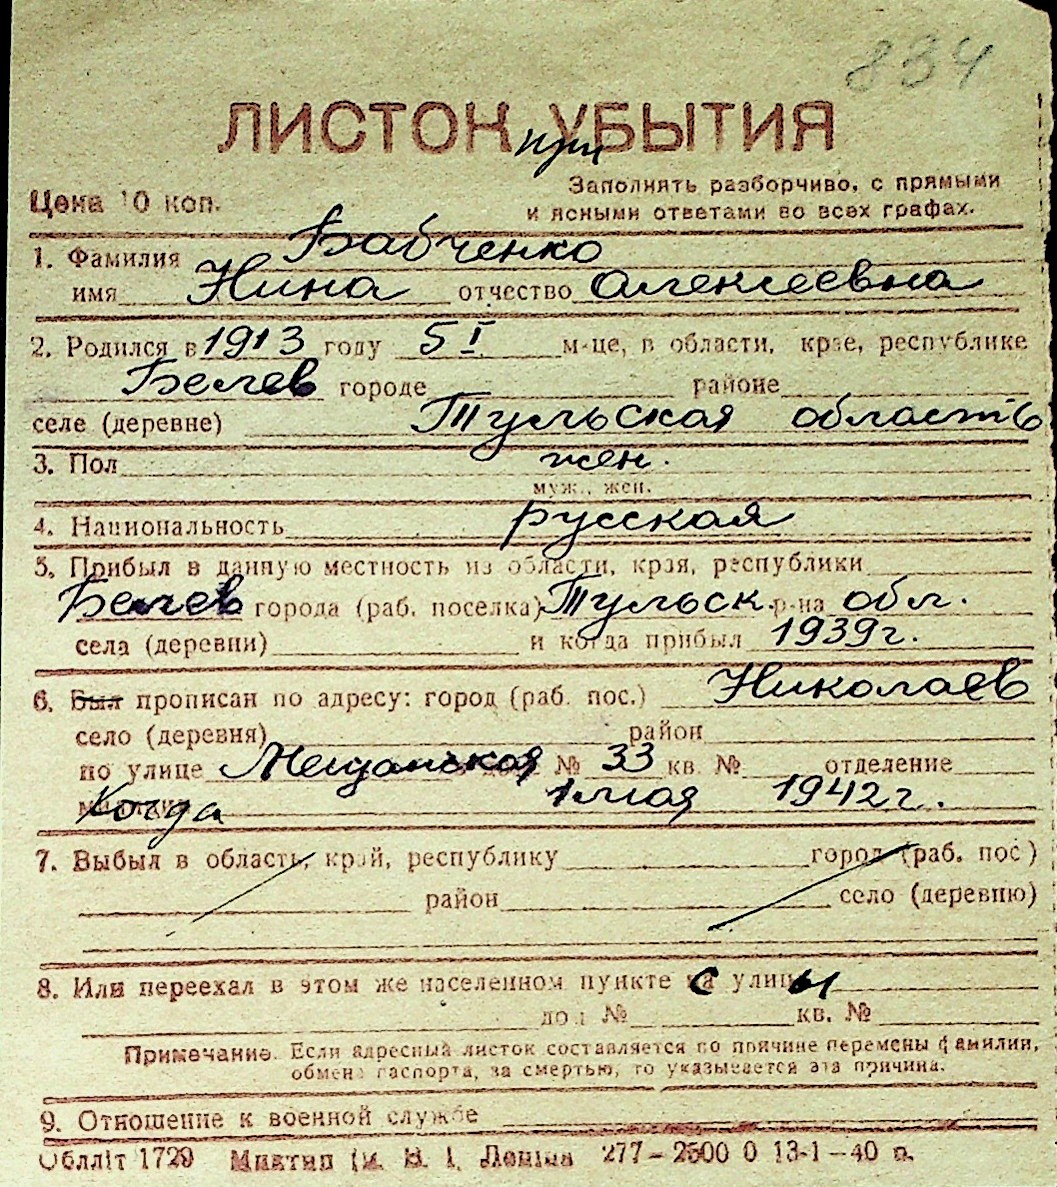 834
ЛИСТОК УБЫТИЯ
при
Цена 10 коп.
Заполнять разборчиво, с прямыми
и ясными ответами во всех графах.
1. Фамилия Бабченко
имя Нина отчество Алексеевна
2. Родился в 1913 году 5 I м-це, в области, крае, республике
Белев городе районе
селе (деревне) Тульская область
3. Пол жен.
муж., жен.
4. Национальность русская
5. Прибыл в данную местность из области, края, республики
Белев города (раб. поселка) Тульск. р-на обл.
села (деревни) и когда прибыл 1939 г.
6. Был прописан по адресу: город (раб. пос.) Николаев
село (деревня) район
по улице Мещанская № 33 кв. № отделение
Когда 1 мая 1942 г.
7. Выбыл в область, край, республику город (раб. пос)
район село (деревню)
8. Или переехал в этом же населенном пункте с улицы
дом № кв. №
Примечание. Если адресный листок составляется по причине перемены фамилии,
обмена паспорта, за смертью, то указывается эта причина.
9. Отношение к военной службе
Облліт 1729 Миктип ім. В. І. Леніна 277-2500 0 13-1-40 р.